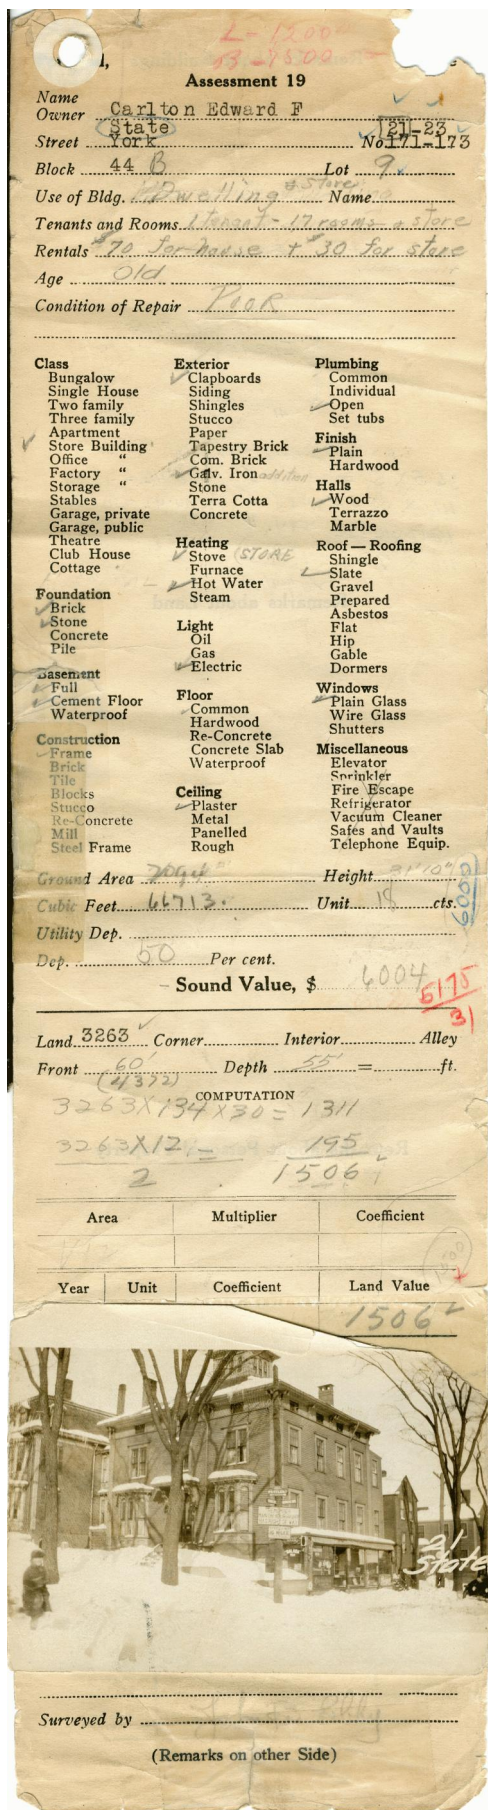 L-1500
B-7500
Assessment 19
Name
Owner Carlton Edward F
State 21-23
Street York No. 171-173
Block 44 B Lot 9
Use of Bldg. Dwelling & Store Name
Tenants and Rooms 1 tenant - 17 rooms + store
Rentals $70 for house + $30 for store
Age Old
Condition of Repair Poor
Class
Bungalow
Single House
Two family
Three family
Apartment
Store Building
Office "
Factory "
Storage "
Stables
Garage, private
Garage, public
Theatre
Club House
Cottage
Foundation
Brick
Stone
Concrete
Pile
Basement
Full
Cement Floor
Waterproof
Construction
Frame
Brick
Tile
Blocks
Stucco
Re-Concrete
Mill
Steel Frame
Exterior
Clapboards
Siding
Shingles
Stucco
Paper
Tapestry Brick
Com. Brick
Galv. Iron addition
Stone
Terra Cotta
Concrete
Heating
Stove (STORE
Furnace
Hot Water
Steam
Light
Oil
Gas
Electric
Floor
Common
Hardwood
Re-Concrete
Concrete Slab
Waterproof
Ceiling
Plaster
Metal
Panelled
Rough
Plumbing
Common
Individual
Open
Set tubs
Finish
Plain
Hardwood
Halls
Wood
Terrazzo
Marble
Roof — Roofing
Shingle
Slate
Gravel
Prepared
Asbestos
Flat
Hip
Gable
Dormers
Windows
Plain Glass
Wire Glass
Shutters
Miscellaneous
Elevator
Sprinkler
Fire Escape
Refrigerator
Vacuum Cleaner
Safes and Vaults
Telephone Equip.
Ground Area Height 31'10"
Cubic Feet 66713. Unit 18 cts.
6000
Utility Dep.
Dep. 50 Per cent.
Sound Value, $ 6004
5175
31
Land 3263 Corner Interior Alley
Front 60' Depth 55' = ft.
(4372)
COMPUTATION
3263X134X30 = 1311
3263X12 = 195
2 1506
Area Multiplier Coefficient
1500
Year Unit Coefficient Land Value
1506
21
State
Surveyed by
(Remarks on other Side)